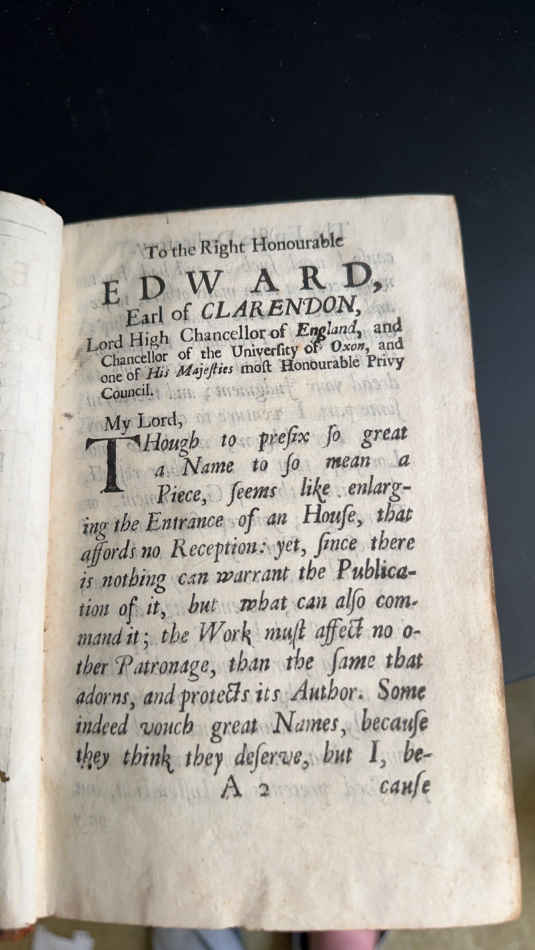 To the Right Honourable
EDWARD,
Earl of CLARENDON,
Lord High Chancellor of England, and
Chancellor of the Univerſity of Oxon, and
one of His Majeſties moſt Honourable Privy
Council.
My Lord,
THough to prefix ſo great
a Name to ſo mean a
Piece, ſeems like enlarg-
ing the Entrance of an Houſe, that
affords no Reception: yet, ſince there
is nothing can warrant the Publica-
tion of it, but what can alſo com-
mand it; the Work muſt affect no o-
ther Patronage, than the ſame that
adorns, and protects its Author. Some
indeed vouch great Names, becauſe
they think they deſerve, but I, be-
A 2 cauſe